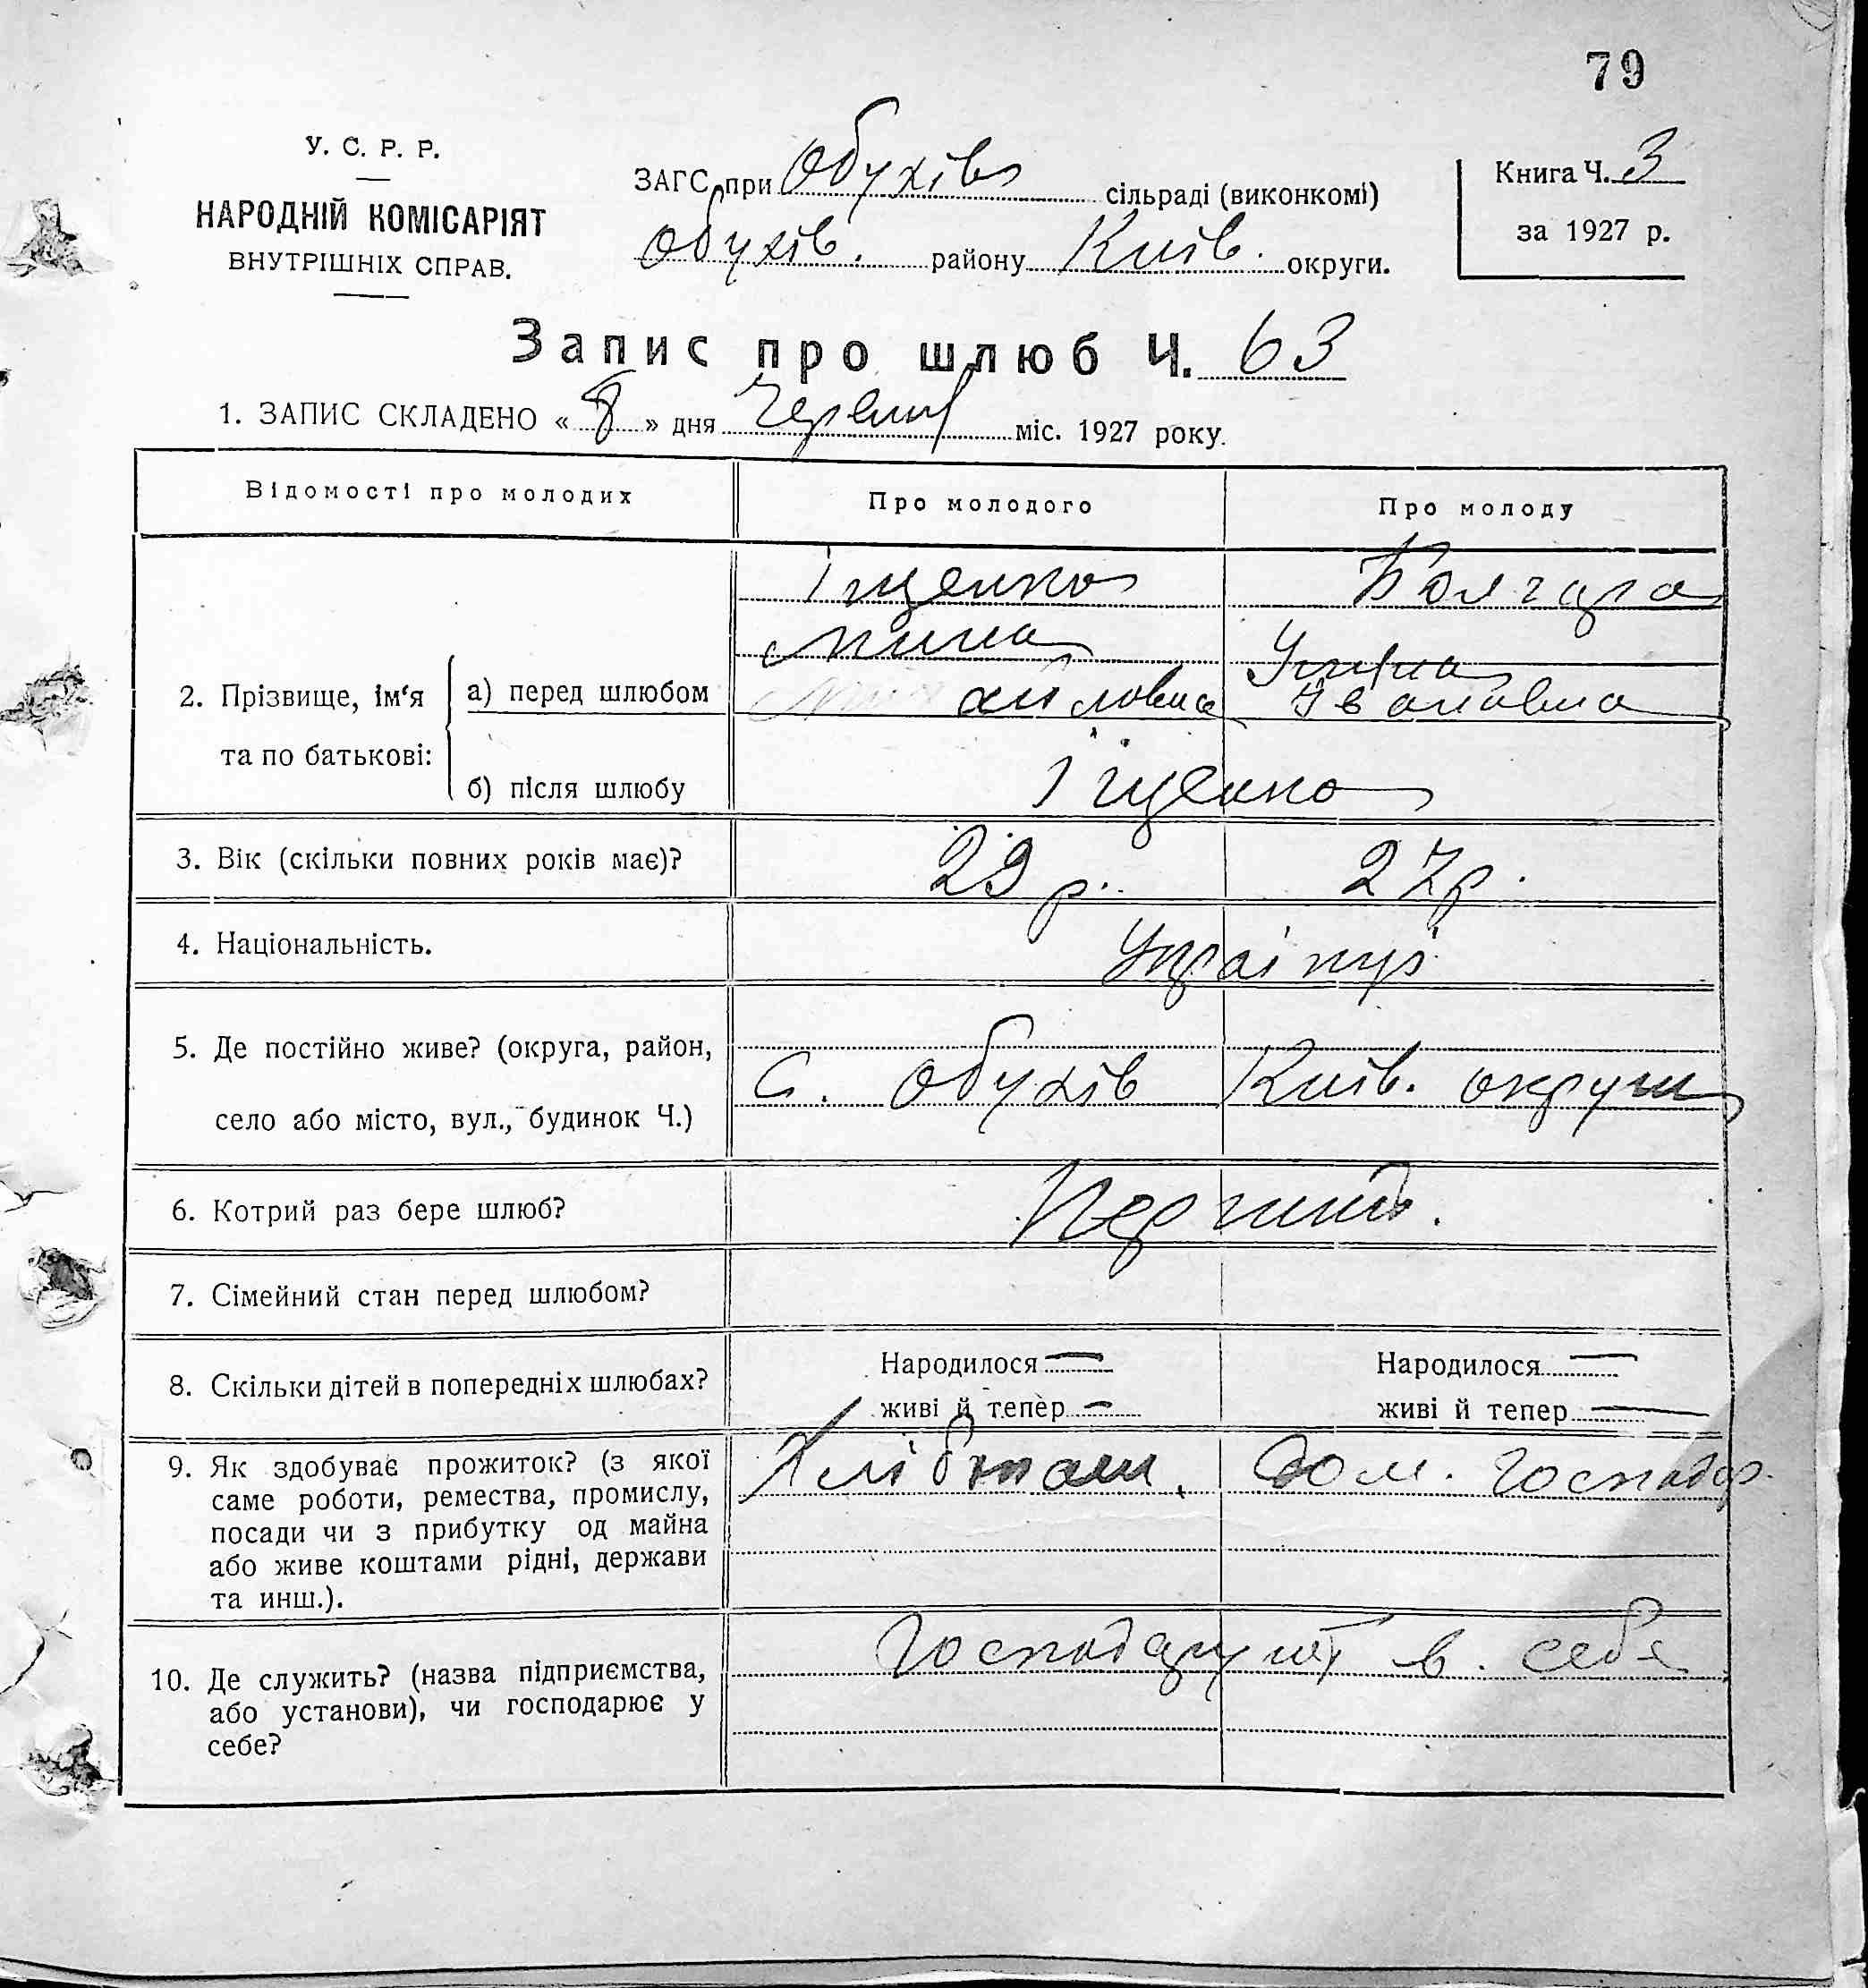 79
У. С. Р. Р.
НАРОДНІЙ КОМІСАРІЯТ
ВНУТРІШНІХ СПРАВ.
ЗАГС при Обухів сільраді (виконкомі)
Обухів. району Київ. округи.
Книга Ч. 3
за 1927 р.
Запис про шлюб Ч. 63
1. ЗАПИС СКЛАДЕНО « 8 » дня Червня міс. 1927 року.
Відомості про молодих
Про молодого
Про молоду
2. Прізвище, ім‘я та по батькові:
а) перед шлюбом
Іщенко
Мина
хайловиа
Уліта
Івановна
б) після шлюбу
Іщенко
3. Вік (скільки повних років має)?
29 р.
27 р.
4. Національність.
Українці
5. Де постійно живе? (округа, район,
село або місто, вул., будинок Ч.)
С. Обухів Київ. округи
6. Котрий раз бере шлюб?
Перший.
7. Сімейний стан перед шлюбом?
8. Скільки дітей в попередніх шлюбах?
Народилося —
живі й тепер —
Народилося —
живі й тепер —
9. Як здобуває прожиток? (з якої
саме роботи, ремества, промислу,
посади чи з прибутку од майна
або живе коштами рідні, держави
та инш.).
Хлібопаш.
Дом. господар.
10. Де служить? (назва підприємства,
або установи), чи господарює у
себе?
Господарують в себе